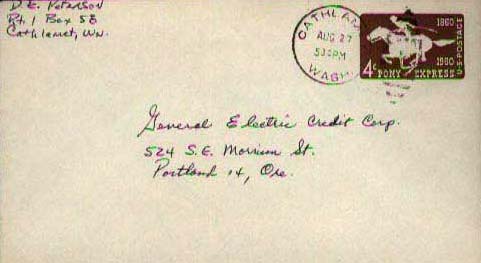 D. E. Peterson
Rt. 1 Box 58
Cathlamet, Wn.
CATHLAM
AUG 27
530PM
WASH.
1860
1960
4¢ PONY EXPRESS
U.S. POSTAGE
General Electric Credit Corp.
524 S.E. Morrison St.
Portland 14, Ore.